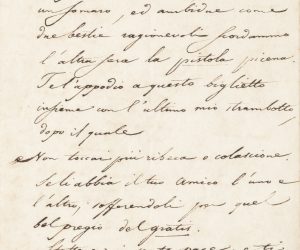 un somaro, ed ambidue come
due bestie ragionevoli scordammo
l'altra sera la pistola picena.
Te l'appodio a questo biglietto
insieme con l'ultimo mio strambotto
dopo il quale
Non toccai più ribeca o colascione.
Se li abbia il tuo amico l'uno e
l'altro, soffrendoli per quel
bel pregio del gratis.